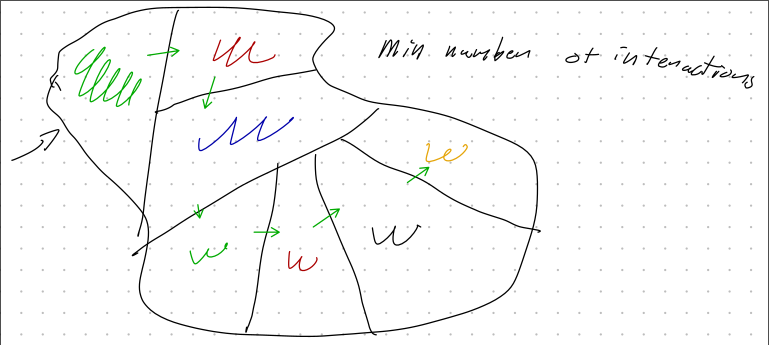 Min number of interactions